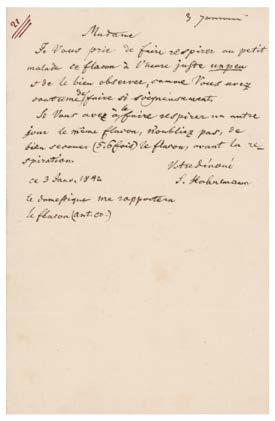 21
3 janvier
Madame
Je Vous prie de faire respirer au petit
malade ce flacon à l'heure juste un peu
et de le bien observer, comme Vous avez
coutume de faire si soigneusement.
Si Vous avez à le faire respirer un autre
jour le même flacon, n'oubliez pas, de
bien secouer (5.6 fois) le flacon, avant la re-
spiration.
Votre dévoué
ce 3 Janv. 1842
S. Hahnemann
le domestique me rapportera
le flacon (ant. co.)